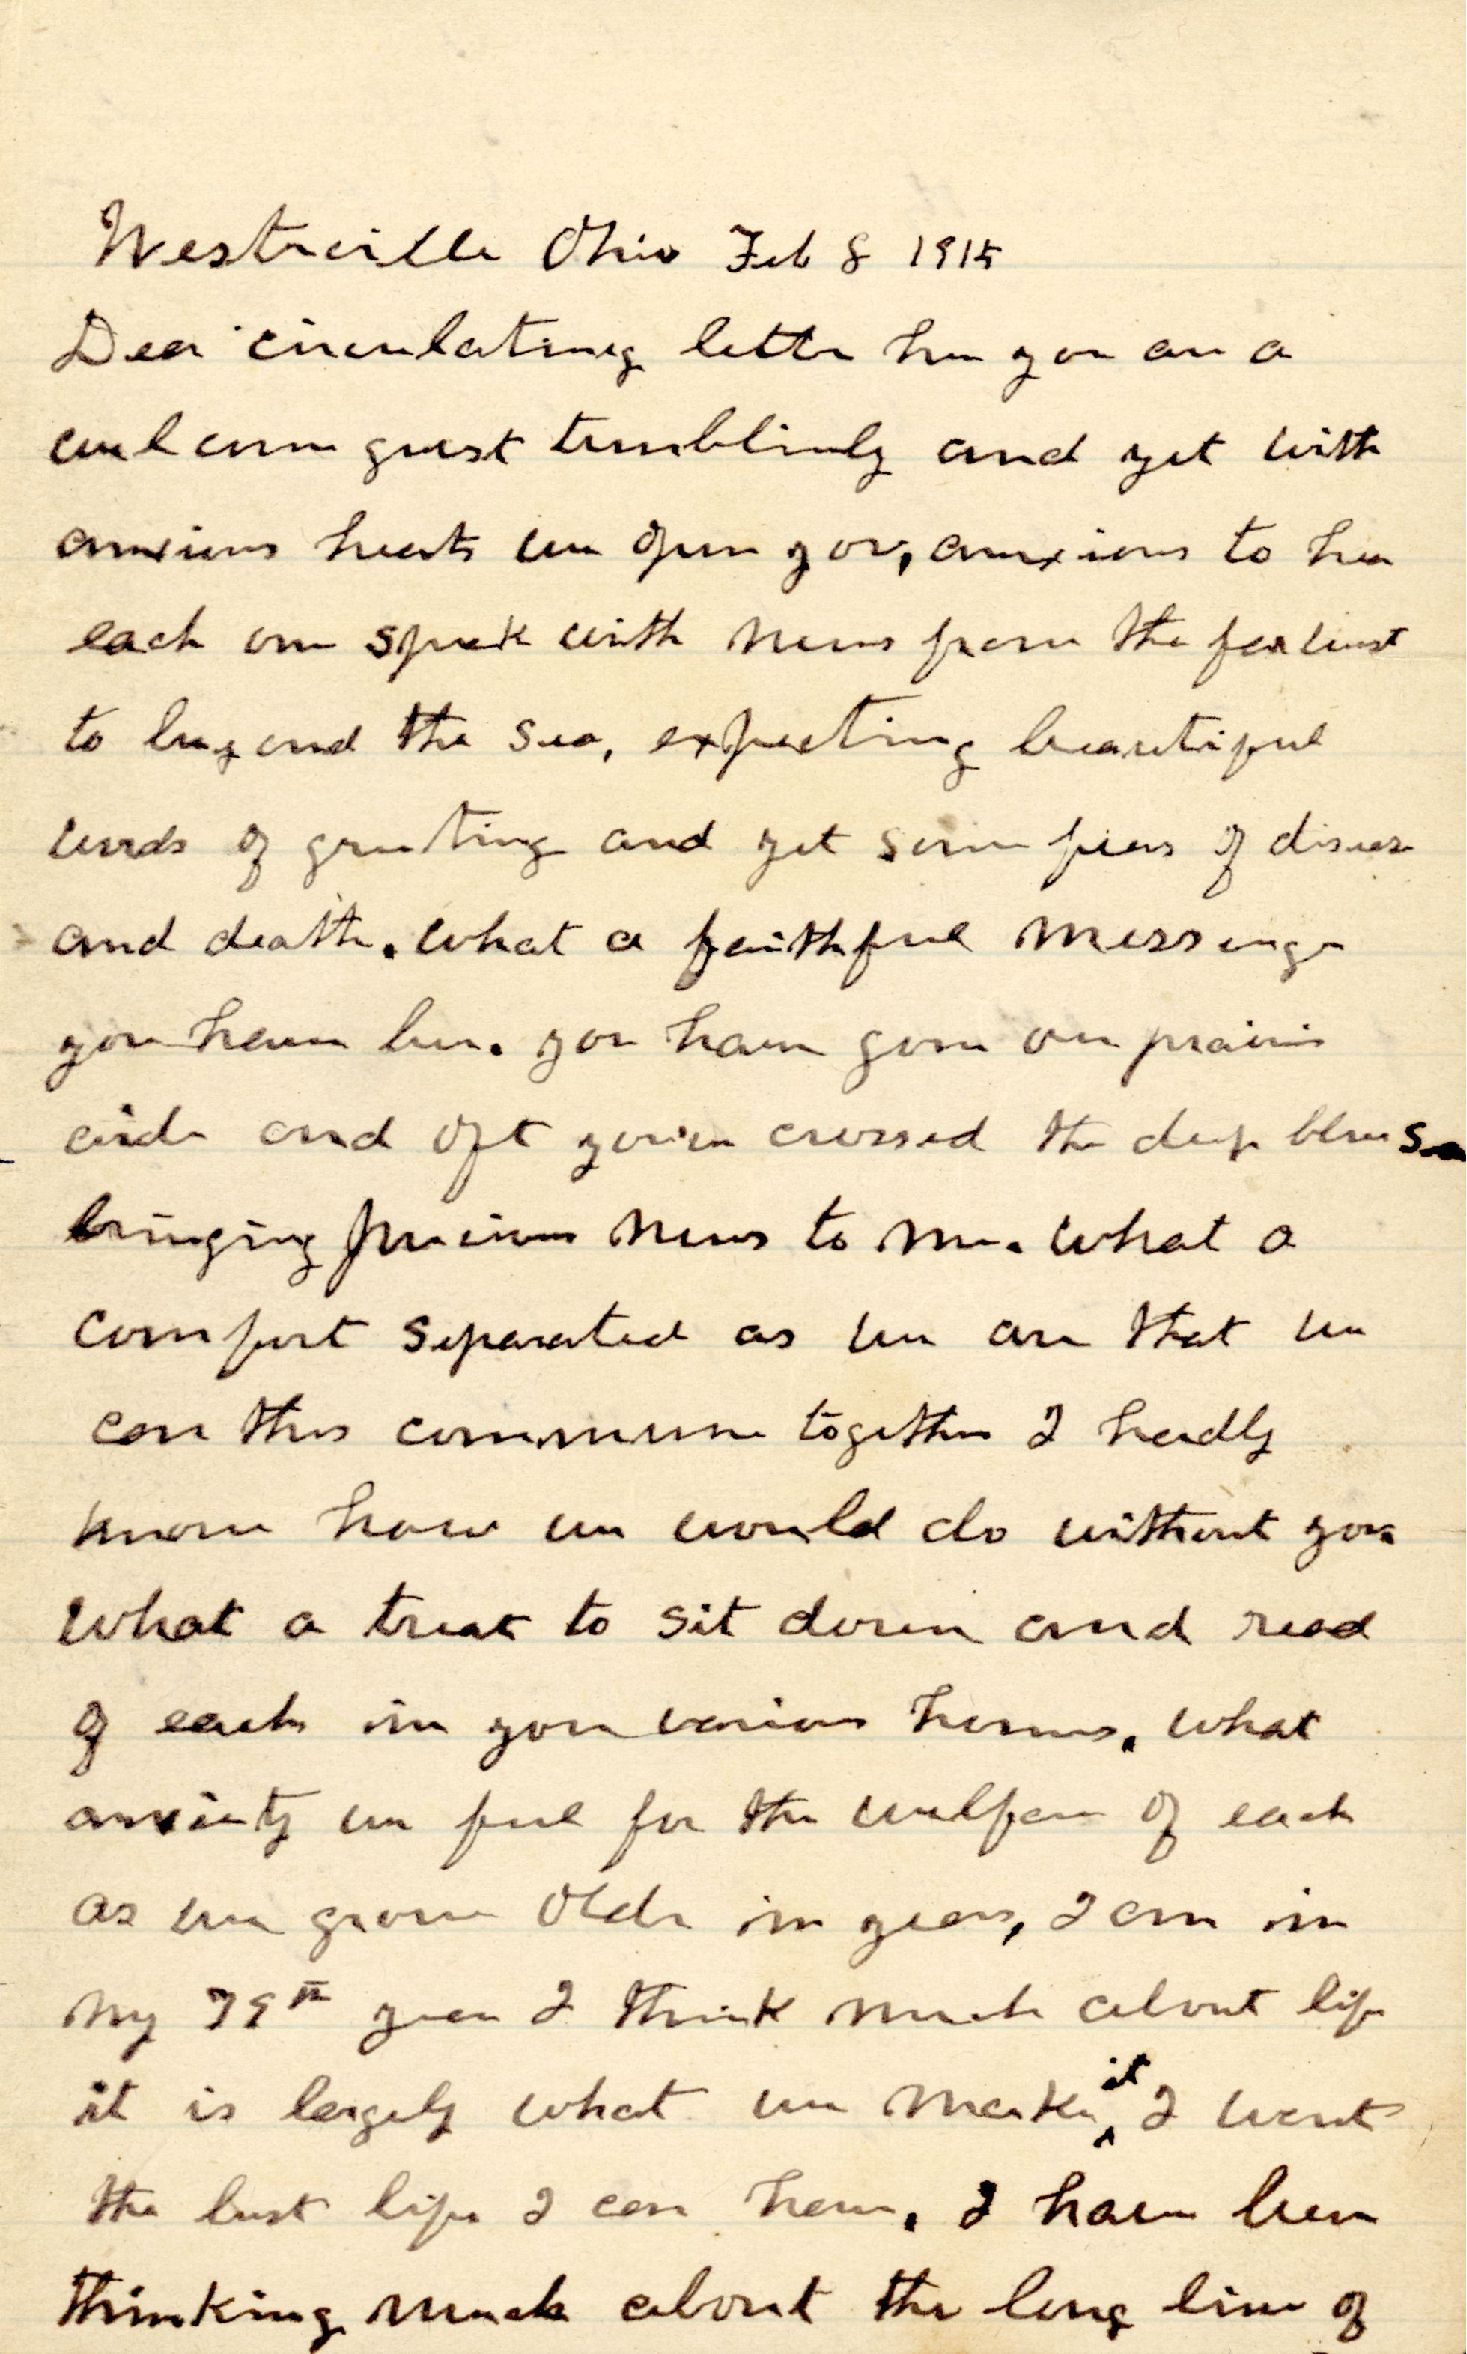 Westville Ohio Feb 8 1915
Dear circulating letter here you are a
welcome guest tremblingly and yet with
anxious hearts we open you, anxious to hear
each one speak with news from the far west
to beyond the sea, expecting beautiful
words of greeting and yet some fears of disease
and death. What a faithful messenger
you have been. you have gone our prairie
circle and oft you've crossed the deep blue sea
bringing precious news to me. What a
comfort separated as we are that we
can thus commune together I hardly
know how we would do without you.
What a treat to sit down and read
of each in your various homes. What
anxiety we feel for the welfare of each
as we grow older in years, I am in
my 79th year I think much about life
it is largely what we make it, I want
the best life I can have. I have been
thinking much about the long line of